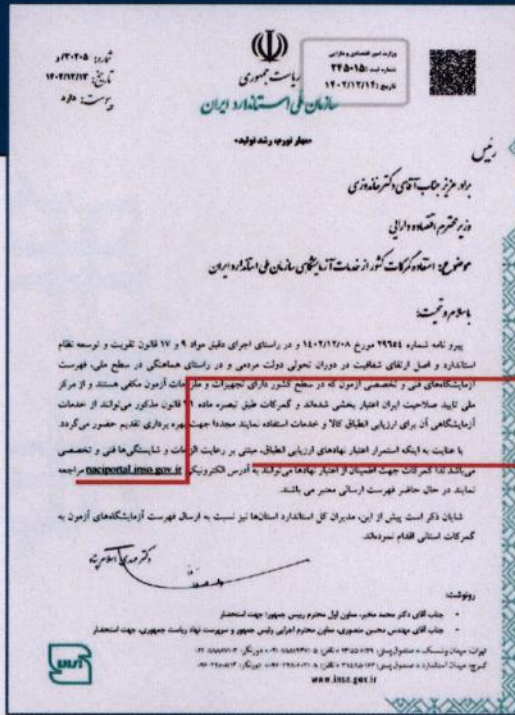 شماره: ۳۰۲۰۵/و
تاریخ: ۱۴۰۲/۱۲/۱۳
پیوست: دارد
ریاست جمهوری
سازمان ملی استاندارد ایران
«مهار تورم، رشد تولید»
وزارت امور اقتصادی و دارایی
شماره ثبت: ۲۴۵۰۱۵
تاریخ: ۱۴۰۲/۱۲/۱۴
رئیس
برادر عزیز جناب آقای دکتر خاندوزی
وزیر محترم اقتصاد و دارایی
موضوع: استفاده گمرکات کشور از خدمات آزمایشگاهی سازمان ملی استاندارد ایران
با سلام و تحیت؛
پیرو نامه شماره ۲۹۶۵۴ مورخ ۱۴۰۲/۱۲/۰۸ و در راستای اجرای دقیق مواد ۹ و ۱۷ قانون تقویت و توسعه نظام
استاندارد و اصل ارتقای شفافیت در دوران تحولی دولت مردمی و در راستای هماهنگی در سطح ملی، فهرست
آزمایشگاه‌های فنی و تخصصی آزمون که در سطح کشور دارای تجهیزات و ملزومات آزمون مکفی هستند و از مرکز
ملی تایید صلاحیت ایران اعتبار بخشی شده‌اند و گمرکات طبق تبصره ماده قانون مذکور می‌توانند از خدمات
آزمایشگاهی آن برای ارزیابی انطباق کالا و خدمات استفاده نمایند مجددا جهت بهره برداری تقدیم حضور می‌گردد.
با عنایت به اینکه استمرار اعتبار نهادهای ارزیابی انطباق، مبتنی بر رعایت الزامات و شایستگی‌ها فنی و تخصصی
می‌باشد لذا گمرکات جهت اطمینان از اعتبار نهادها می‌توانند به آدرس الکترونیکی naciportal.inso.gov.ir مراجعه
نمایند در حال حاضر فهرست ارسالی معتبر می باشند.
شایان ذکر است پیش از این، مدیران کل استاندارد استان‌ها نیز نسبت به ارسال فهرست آزمایشگاه‌های آزمون به
گمرکات استانی اقدام نموده‌اند.
دکتر مهدی اسلام پناه
رونوشت:
- جناب آقای دکتر محمد مخبر، معاون اول محترم رییس جمهور؛ جهت استحضار
- جناب آقای مهندس محسن منصوری، معاون محترم اجرایی رئیس جمهور و سرپرست نهاد ریاست جمهوری، جهت استحضار
www.inso.gov.ir